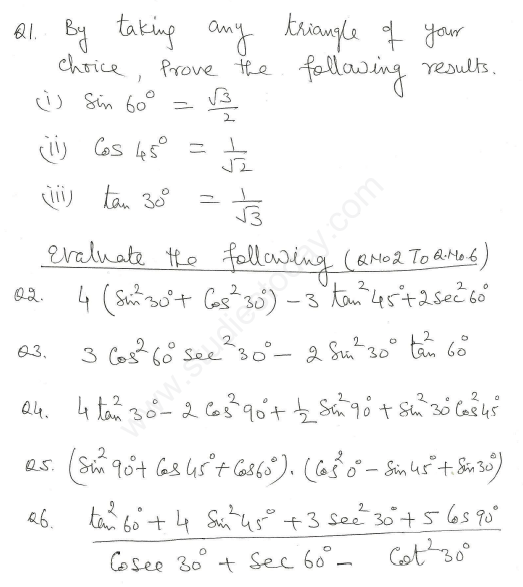 Q1. By taking any triangle of your
choice, Prove the following results.
(i) Sin 60° = √3/2
(ii) Cos 45° = 1/√2
(iii) tan 30° = 1/√3
Evaluate the following (Q.No2 To Q.No.6)
Q2. 4 (Sin²30° + Cos²30°) – 3 tan²45° + 2 Sec²60°
Q3. 3 Cos²60° Sec²30° – 2 Sin²30° tan²60°
Q4. 4 tan²30° – 2 Cos²90° + 1/2 Sin²90° + Sin²30° Cos²45°
Q5. (Sin²90° + Cos 45° + Cos60°). (Cos²0° – Sin 45° + Sin 30°)
Q6. tan²60° + 4 Sin²45° + 3 Sec²30° + 5 Cos 90°
Cosec 30° + Sec 60° – Cot²30°
www.studiestoday.com